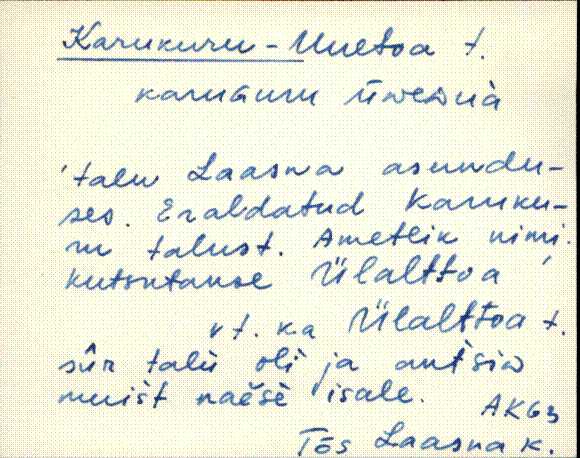 Karukuru-Uuetoa t.
karuGuru üwewià
'talu Laasna asundu-
ses. Eraldatud Karuku-
ru talust. Ametlik nimi.
kutsutakse Ülalttoa
vt. ka Ülalttoa t.
sûr talù oli ja antsiw
muist naësè isale.
AKG3
Tõs Laasna k.